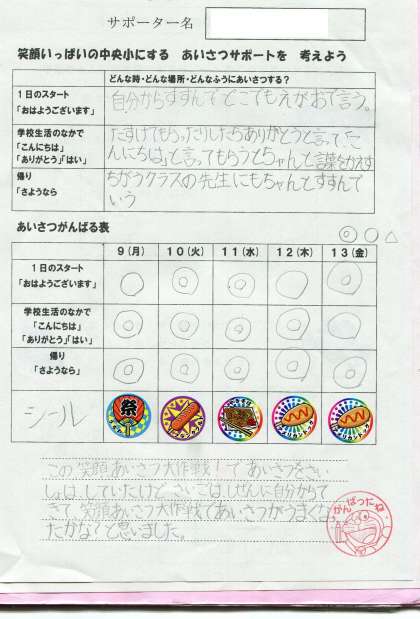 サポーター名
笑顔いっぱいの中央小にする あいさつサポートを 考えよう
どんな時・どんな場所・どんなふうにあいさつする？
1日のスタート
「おはようございます」
自分からすすんでどこでもえがおで言う。
学校生活のなかで
「こんにちは」
「ありがとう」「はい」
たすけてもらったりしたらありがとうと言って、「こ
んにちは」と言ってもらうとちゃんと言葉をかえす
帰り
「さようなら
ちがうクラスの先生にもちゃんとすすんで
いう
あいさつがんばる表
◎ ○ △
9(月) 10(火) 11(水) 12(木) 13(金)
1日のスタート
「おはようございます」
◎ ◎ ◎ ◎
学校生活のなかで
「こんにちは」
「ありがとう」「はい」
◎ ◎ ◎ ◎ ◎
帰り
「さようなら」
◎ ◎ ◎ ◎ ◎
シール
祭
この笑顔あいさつ大作戦！で あいさつをさい
しょは していたけど、さいごは しぜんに自分からで
きて 笑顔あいさつ大作戦で あいさつがうまくな
たかな？と思いました。
がんばったね